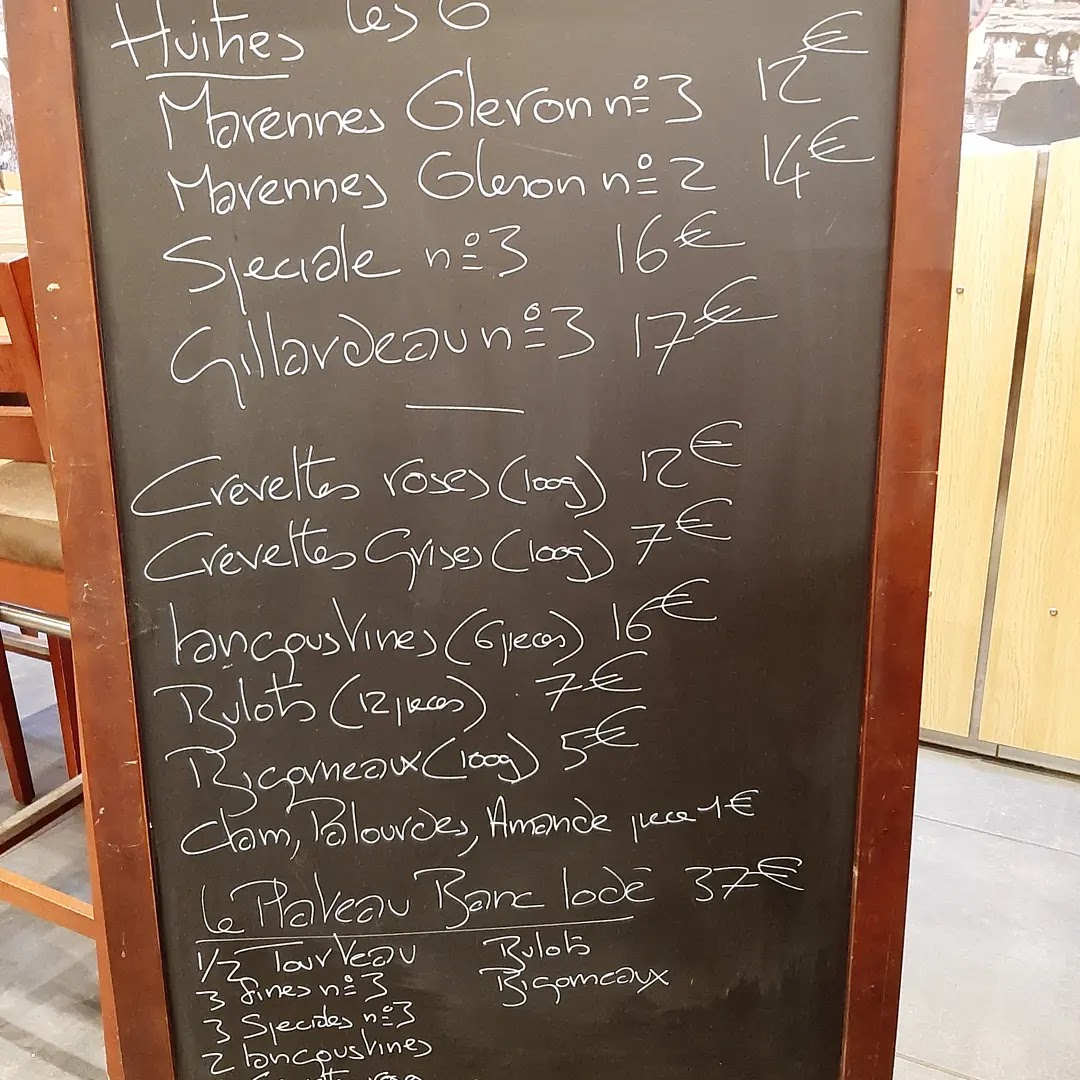 Huitres les 6
Marennes Oleron n°3 12€
Marennes Oleron n°2 14€
Speciale n°3 16€
Gillardeau n°3 17€
Crevettes roses (100g) 12€
Crevettes Grises (100g) 7€
langoustines (6 pieces) 16€
Bulots (12 pieces) 7€
Bigorneaux (100g) 5€
Clam, Palourdes, Amande piece 1€
Le Plateau Banc 37€
1/2 Tourteau
3 fines n°3
3 Speciales n°3
2 langoustines
Bulots
Bigorneaux